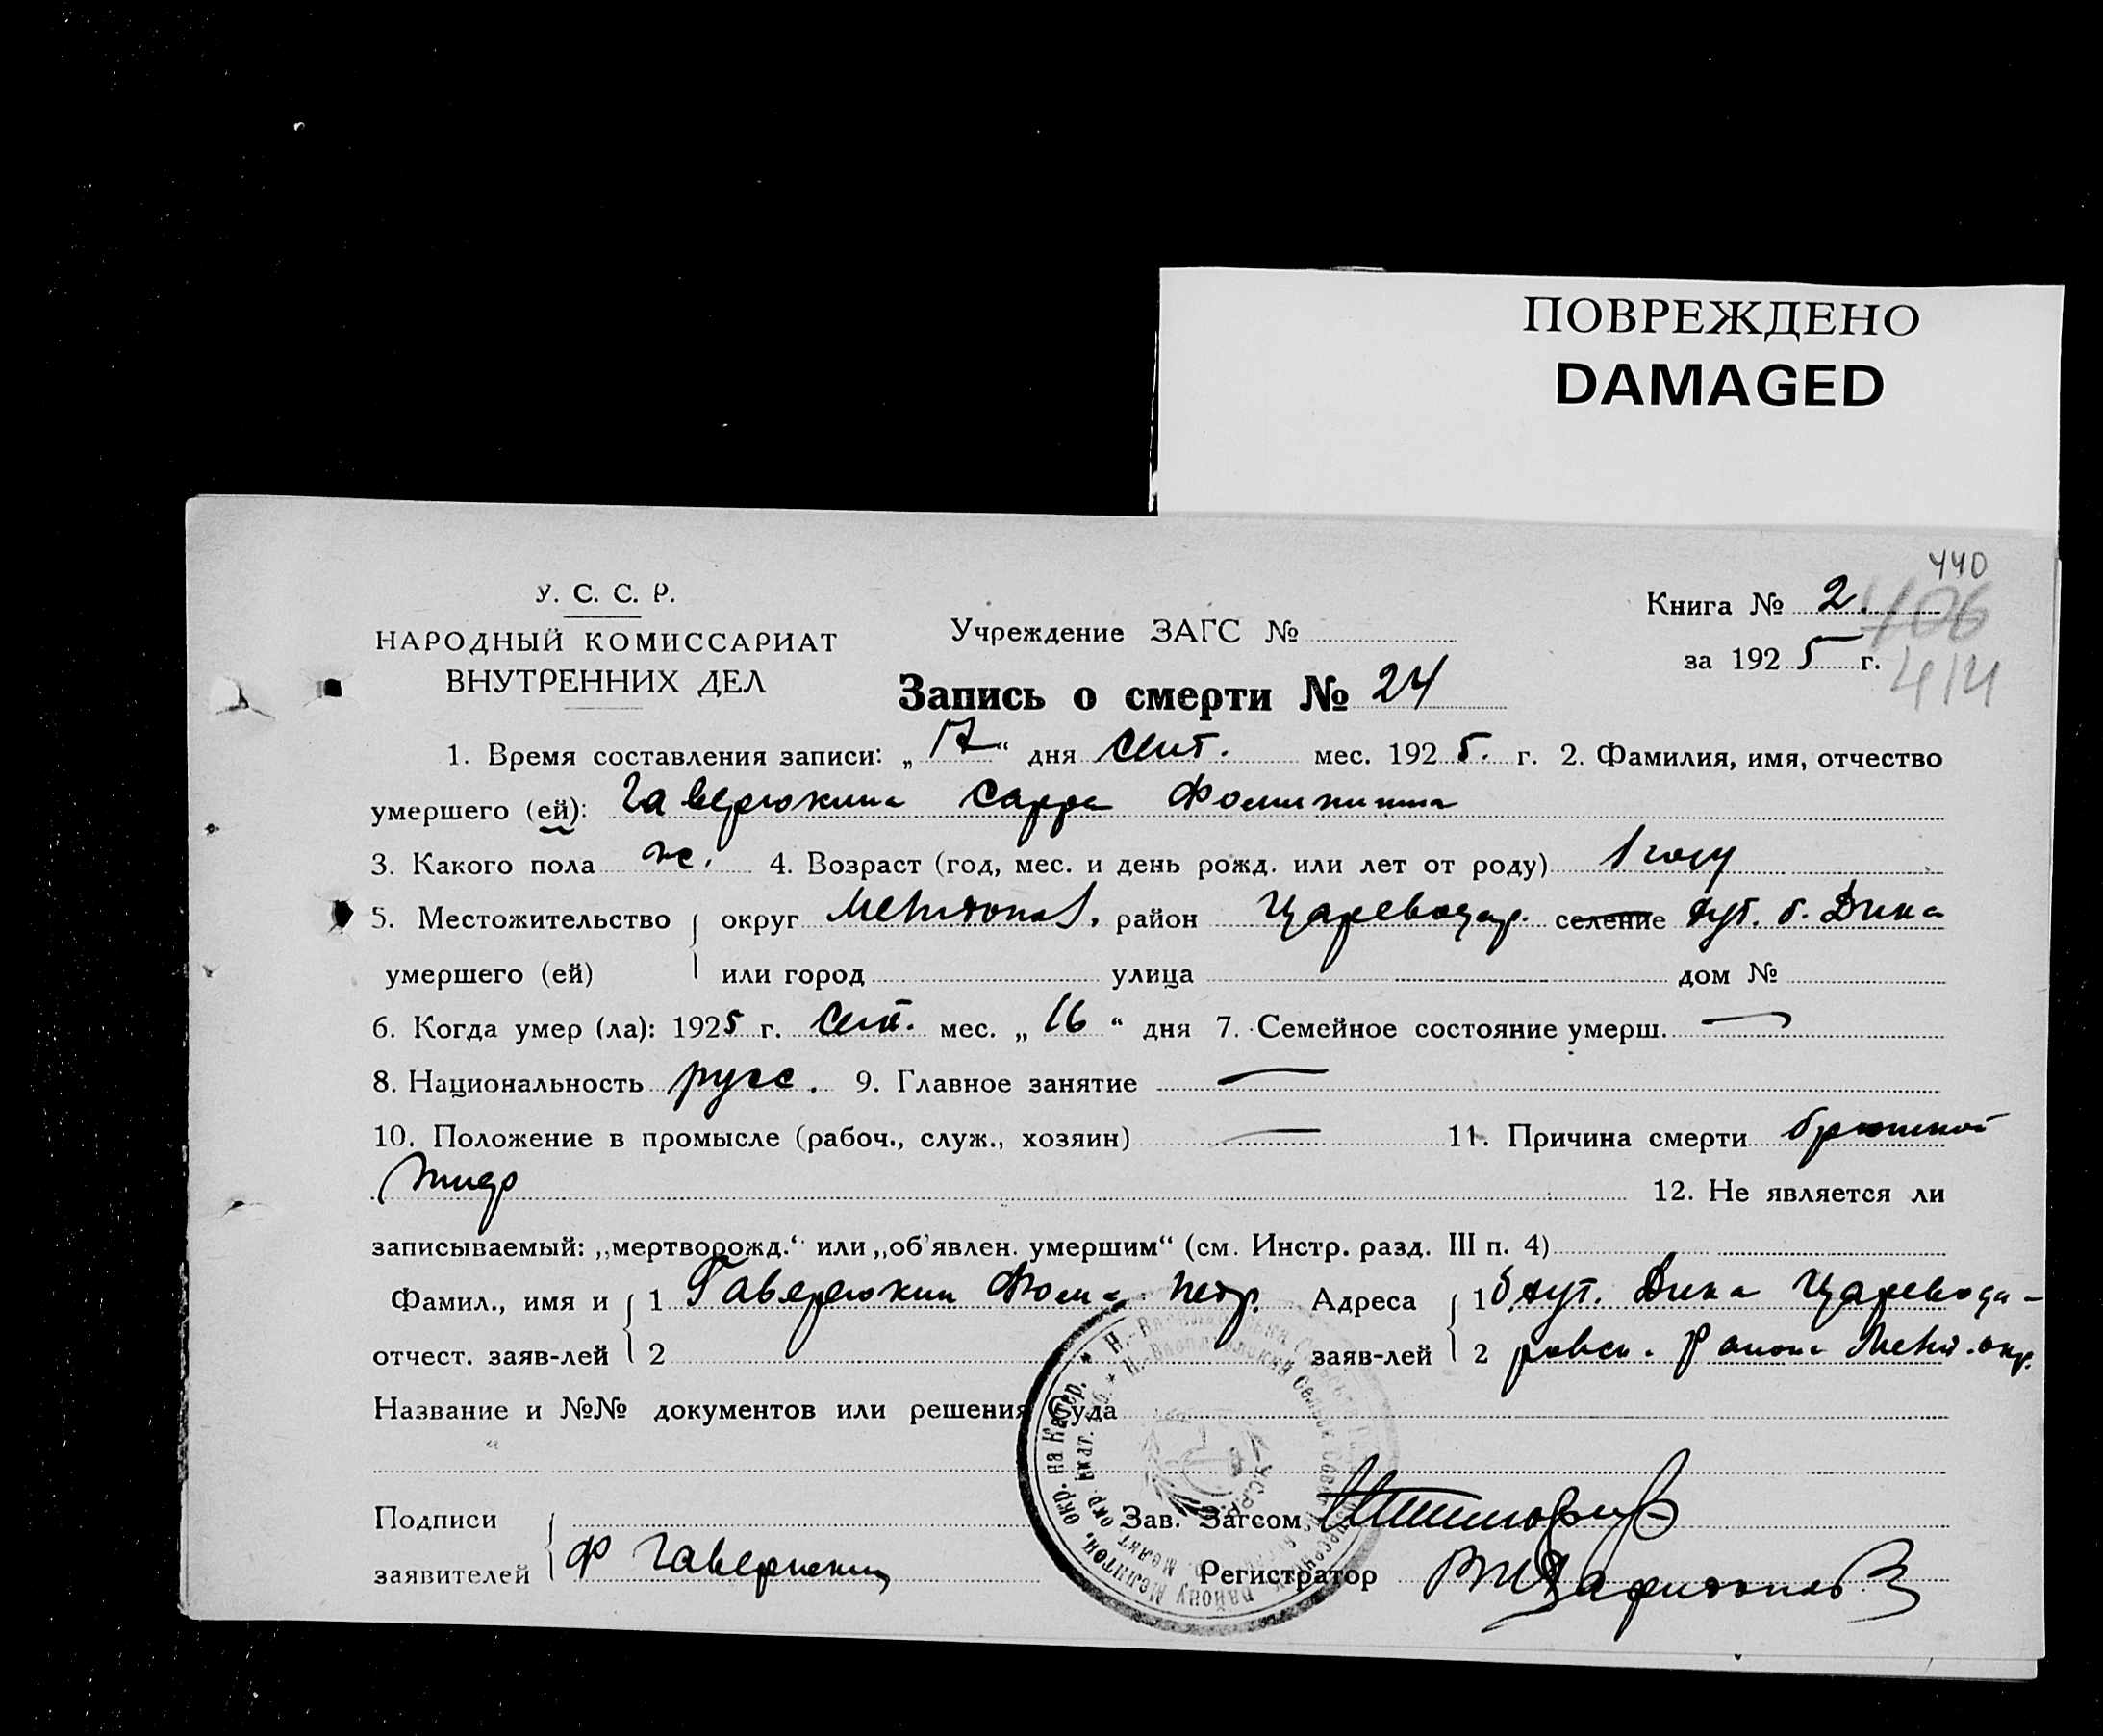 ПОВРЕЖДЕНО
DAMAGED
440
У. С. С. Р.
НАРОДНЫЙ КОМИССАРИАТ
ВНУТРЕННИХ ДЕЛ
Учреждение ЗАГС №
Книга № 2.
406
за 1925 г.
414
Запись о смерти № 24
1. Время составления записи: „17“ дня сент. мес. 1925. г. 2. Фамилия, имя, отчество
умершего (ей): Гаверюкина Сарра Фоминична
3. Какого пола ж. 4. Возраст (год, мес. и день рожд. или лет от роду) 1 году
5. Местожительство округ Мелитопол. район Цареводар. селение хут. б. Дика
умершего (ей) или город улица дом №
6. Когда умер (ла): 1925 г. сент. мес. „16“ дня 7. Семейное состояние умерш. —
8. Национальность русс. 9. Главное занятие —
10. Положение в промысле (рабоч., служ., хозяин) — 11. Причина смерти брюшной
тиф
12. Не является ли
записываемый: „мертворожд.“ или „об'явлен. умершим“ (см. Инстр. разд. III п. 4)
Фамил., имя и 1 Гаверюкин Фома Петр. Адреса 1 б. хут. Дика Царевода-
отчест. заяв-лей 2 заяв-лей 2 ровск. района Мелит. окр.
Название и №№ документов или решения Суда
Подписи
Зав. Загсом
заявителей Ф Гаверюкин
Регистратор